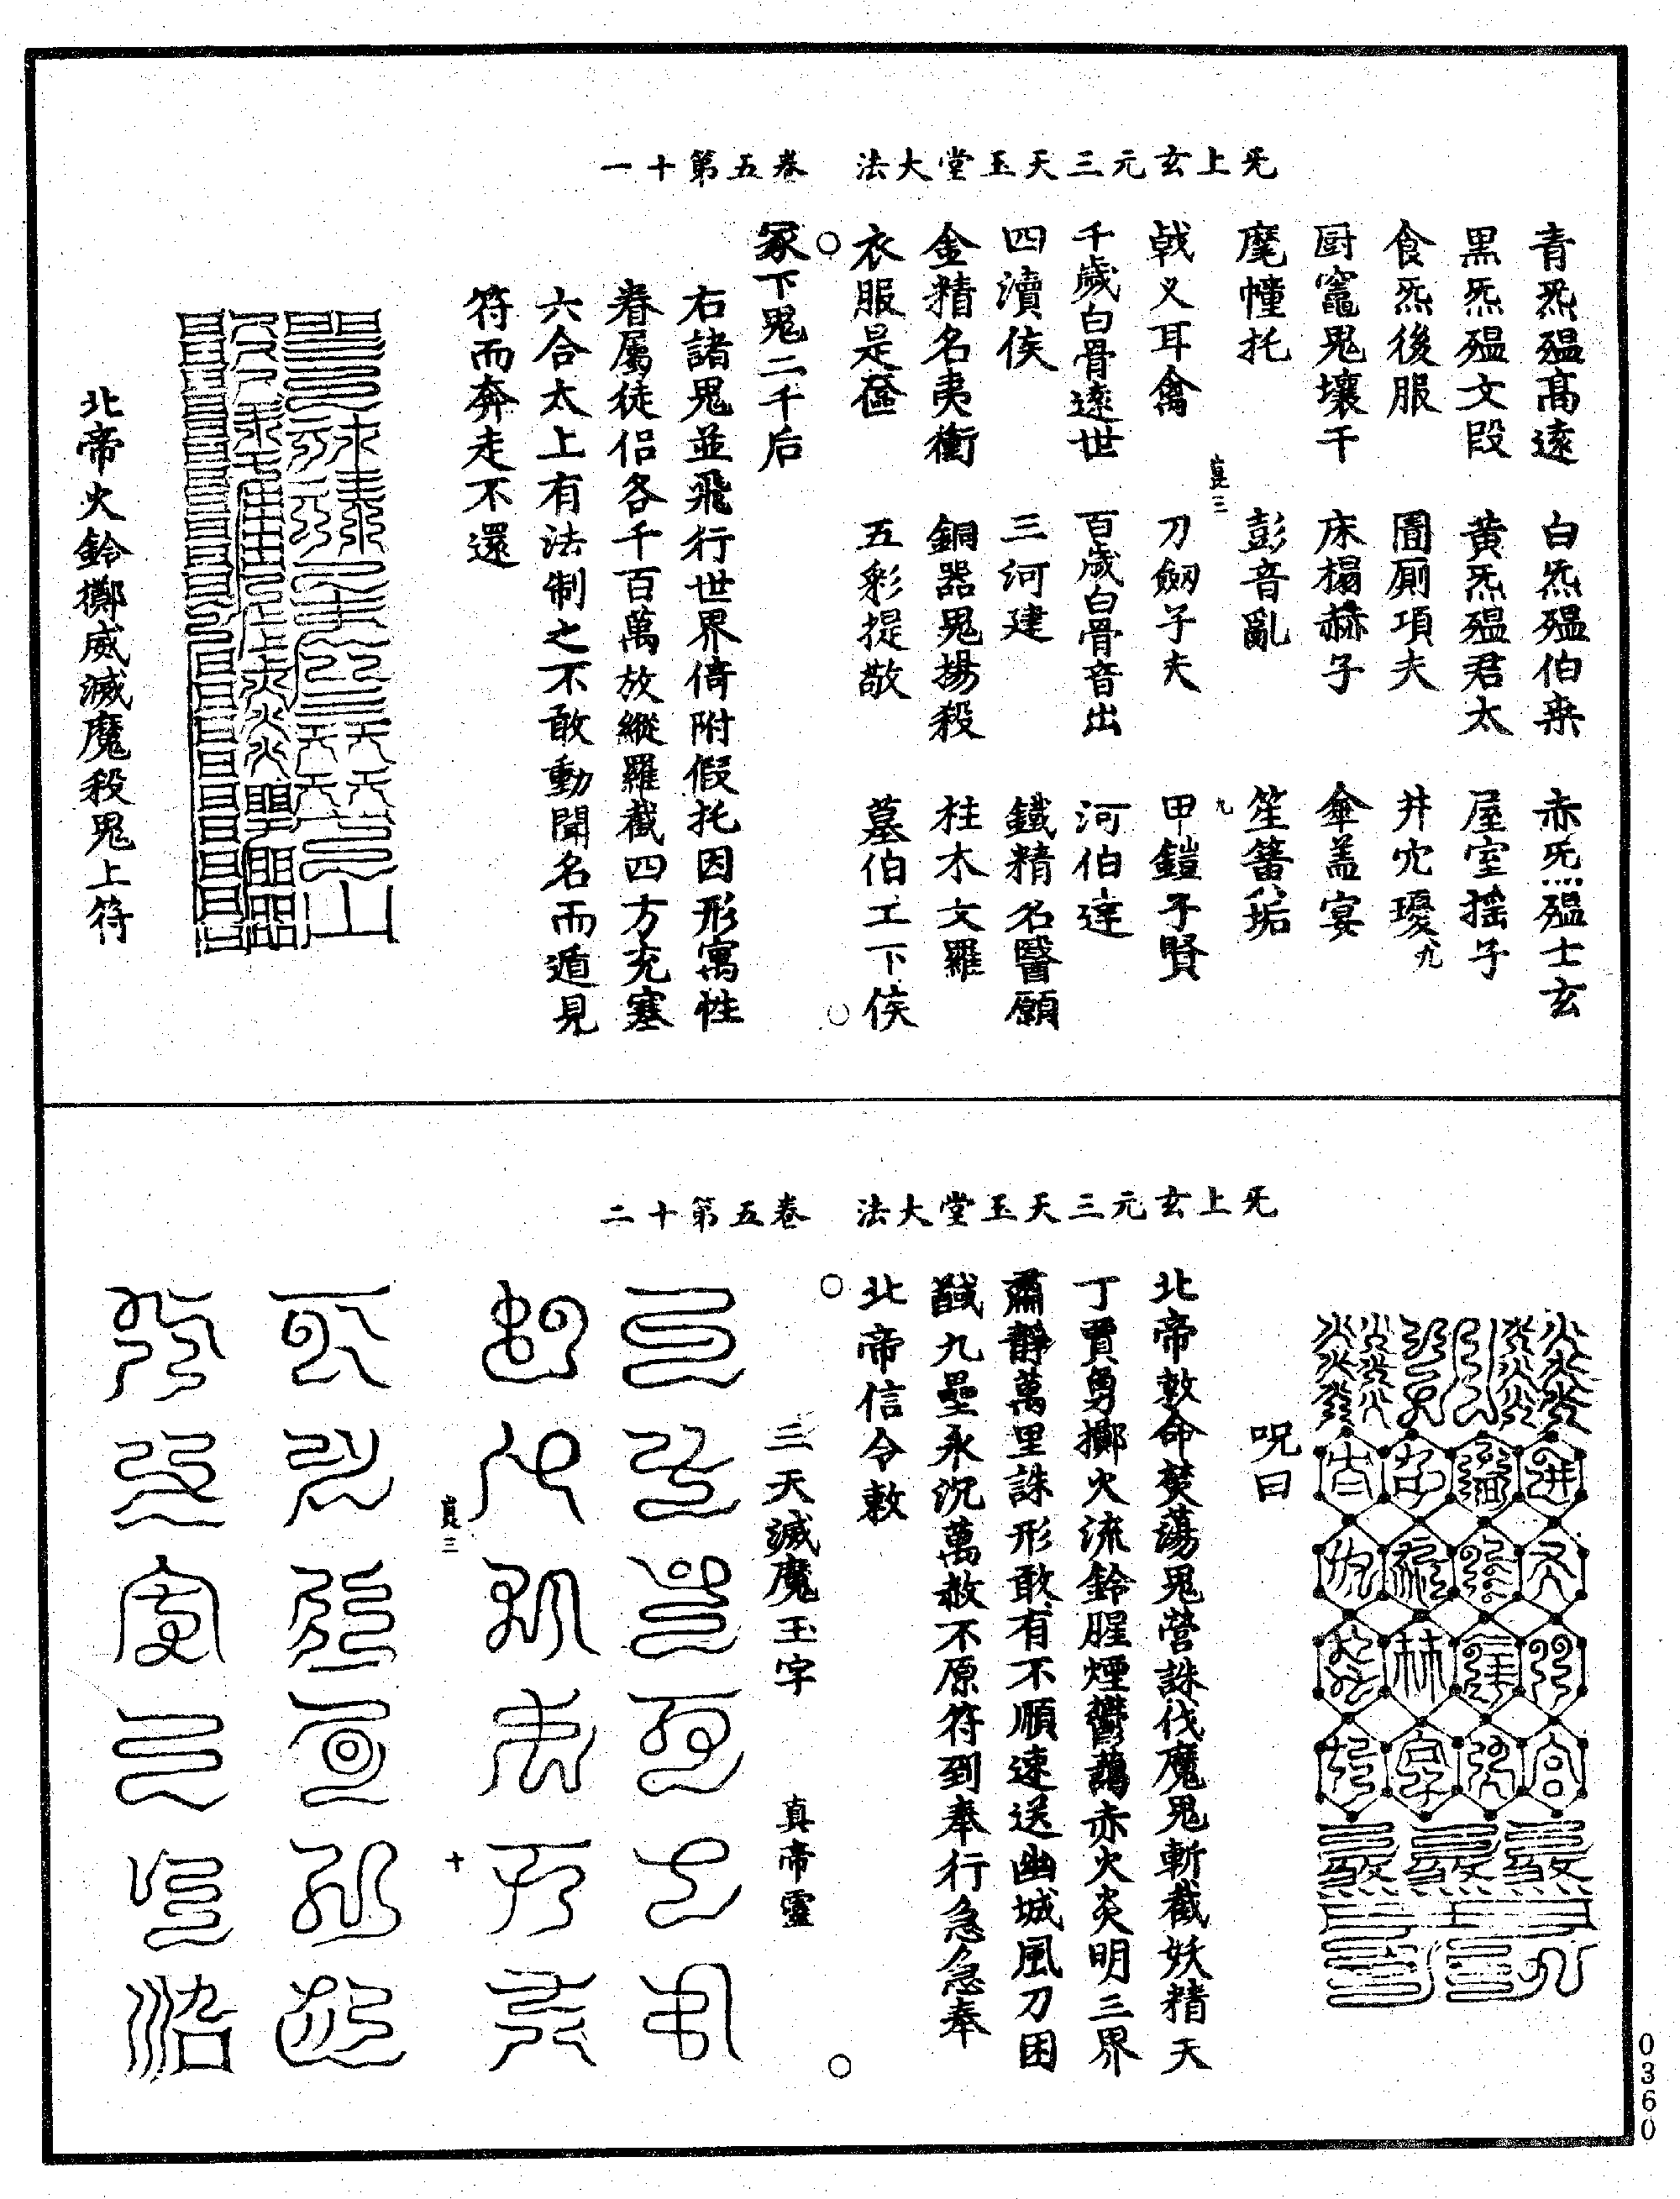 无上玄元三天玉堂大法　卷五第十一
青炁瘟高遠　白炁瘟伯桒　赤炁瘟士玄
黒炁瘟文段　黄炁瘟君太　屋室揺子
食炁後服　圊厠項夫　井穴瓊
厨竈鬼壤千　床榻赫子　傘盖宴
麾幢托　彭音亂　笙簧垢
戟义耳禽　刀劒子夫　甲鎧子賢
千歲白骨遠世　百歲白骨音出　河伯達
四瀆侯　三河建　鐵精名醫願
金精名夷衝　銅器鬼揚殺　柱木文羅
衣服是　五彩提敬　墓伯工下侯
冢下鬼二千后
右諸鬼並飛行世界倚附假托因形寓性
眷屬徒侣各千百萬放縱羅截四方充塞
六合太上有法制之不敢動聞名而遁見
符而奔走不還
北帝火鈴擲威滅魔殺鬼上符
无上玄元三天玉堂大法　卷五第十二
呪曰
北帝敕命焚蕩鬼營誅伐魔鬼斬截妖精天
丁賈勇擲火流鈴腥煙鬱藹赤火炎明三界
肅靜萬里誅形敢有不順速送幽城風刀困
馘九壘永沉萬赦不原符到奉行急急奉
北帝信令敕
三天滅魔玉字　真帝靈
真三
九
真三
十
0360